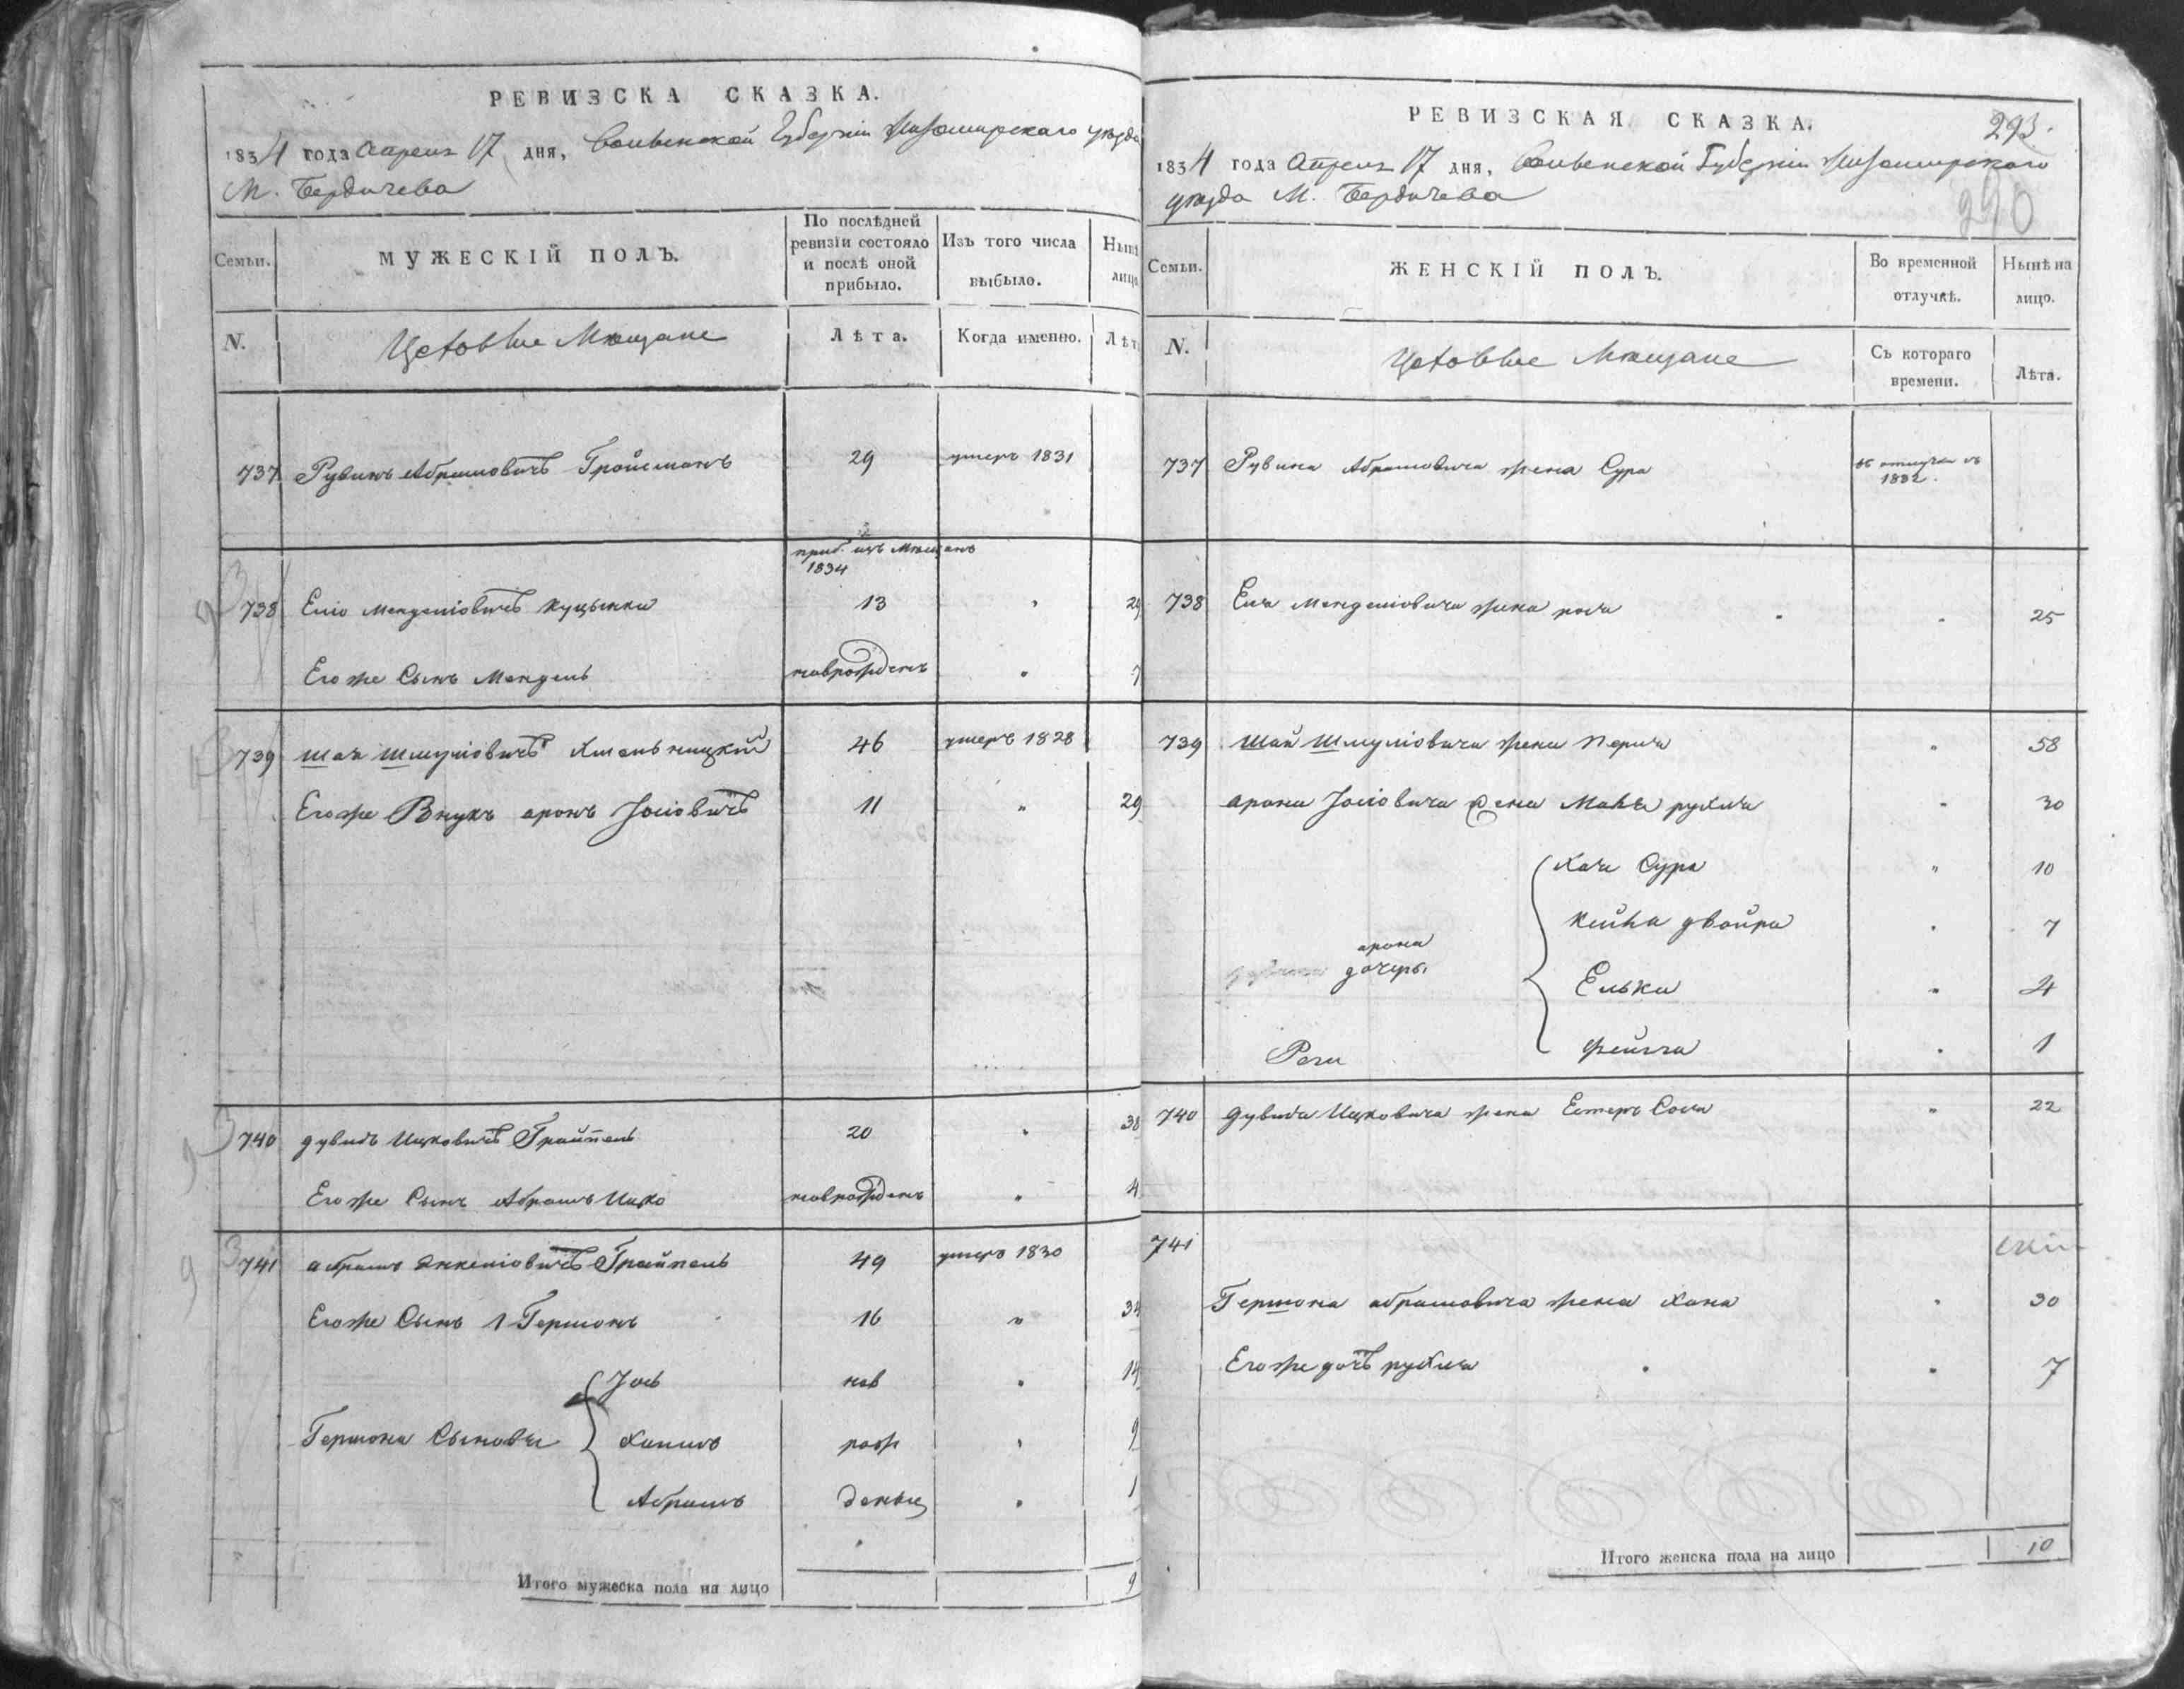 РЕВИЗСКА СКАЗКА.
1834 года Апреля 17 дня, Волынской Губернии Житомирского уезда
М. Бердичева
Семьи.
МУЖЕСКІЙ ПОЛЪ.
По послѣдней ревизіи состояло и послѣ оной прибыло.
Изъ того числа выбыло.
Нынѣ
лицо
N.
Цеховые Мещане
Лѣта.
Когда именно.
Лѣт
737 Рувинъ Абрамовичъ Гройсманъ 29 умеръ 1831
приб. изъ Мещанъ
1834
738 Елио Менделіовичъ Куцынки 13 29
Егоже Сынъ Мендель новрожденъ 7
739 Шая Шмуліовичъ Хмельницкій 46 умеръ 1828
Егоже Внукъ Аронъ Іосіовичъ 11 29
740 Дувидъ Ицковичъ Грайпель 20 38
Егоже Сынъ Абрамъ Ицко новрожденъ 4
741 Абрамъ Янкеліовичъ Грайпель 49 умеръ 1830
Егоже Сынъ 1 Гершонъ 16 34
Іось нов 14
Гершона Сыновья Хаимъ рож 9
Абрамъ дены 1
Итого мужеска пола на лицо 9
РЕВИЗСКАЯ СКАЗКА.
293.
290
1834 года Апреля 17 дня, Волынской Губерніи Житомирского
уезда М. Бердичева
Семьи.
ЖЕНСКІЙ ПОЛЪ.
Во временной отлучкѣ.
Нынѣ на лицо.
N.
Цеховые Мещане
Съ котораго времени.
Лѣта.
737 Рувина Абрамовича жена Сура въ отлучки съ
1832.
738 Еля Менделіовича жена 25
739 Шаи Шмуліовича жена Перля 58
Арона Іосіовича жена Рухля 30
Хая Сура 10
Кейна Двойра 7
Арона
дочеры
Елька 4
Фейга 1
740 Дувида Ицковича жена Естеръ Сося 22
741
Гершона Абрамовича жена Хана 30
Егоже дочь Рухля 7
Итого женска пола на лицо 10